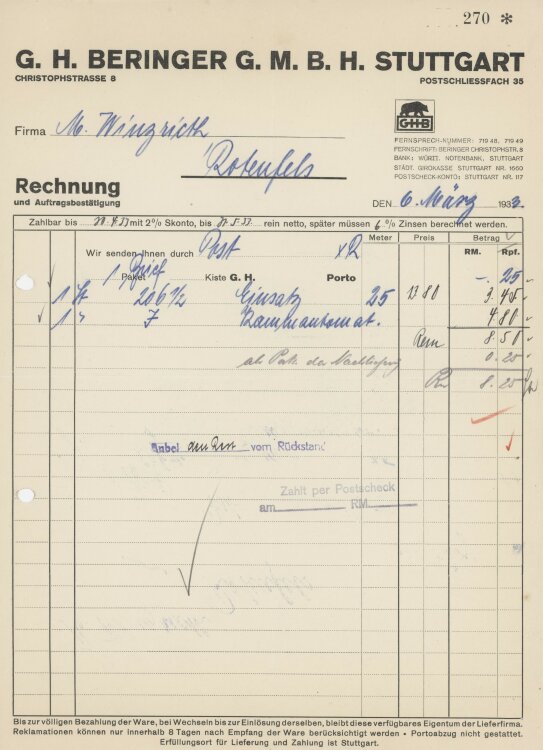 270 *
G. H. BERINGER G. M. B. H. STUTTGART
CHRISTOPHSTRASSE 8
POSTSCHLIESSFACH 35
GHB
Firma M. Winzrieth
Rotenfels
FERNSPRECH-NUMMER: 719 48, 719 49
FERNSCHRIFT: BERINGER CHRISTOPHSTR. 8
BANK: WÜRTT. NOTENBANK, STUTTGART
STÄDT. GIROKASSE STUTTGART NR. 1660
POSTSCHECK-KONTO: STUTTGART NR. 117
Rechnung
und Auftragsbestätigung
DEN 6. März 1933
Zahlbar bis mit 2% Skonto, bis rein netto, später müssen 6% Zinsen berechnet werden.
Meter Preis Betrag
RM. Rpf.
Wir senden Ihnen durch Post
1 Brief
Paket Kiste G. H. Porto -. 25
1 St 206½ Einsatz 25 13 80 3 45
1 " 7 4 80
8 50
als Porto der Nachlieferung 0.25
8.25
Anbei den Rest vom Rückstand
Zahlt per Postscheck
am RM.
Bis zur völligen Bezahlung der Ware, bei Wechseln bis zur Einlösung derselben, bleibt diese verfügbares Eigentum der Lieferfirma.
Reklamationen können nur innerhalb 8 Tagen nach Empfang der Ware berücksichtigt werden • Portoabzug nicht gestattet.
Erfüllungsort für Lieferung und Zahlung ist Stuttgart.